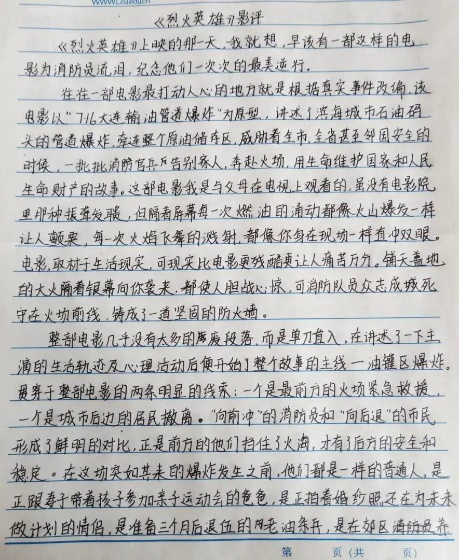 www.Lcuedu.cn
《烈火英雄》影评
《烈火英雄》上映的那一天，我就想，早该有一部这样的电
影为消防员流泪，纪念他们一次次的最美逆行。
往往一部电影最打动人心的地方就是根据真实事件改编，该
电影以"7·16大连输油管道爆炸"为原型，讲述了滨海城市石油码
头的管道爆炸，牵连整个原油储存区，威胁着全市、全省甚至邻国安全的
时候，一批批消防官兵告别家人，奔赴火场，用生命维护国家和人民
生命财产的故事。这部电影我是与父母在电视上观看的，虽没有电影院
里那种振聋发聩，但隔着屏幕每一次燃油的涌动都像火山爆发一样
让人颤栗，每一次火焰飞舞的溅射，都像你身在现场一样直冲双眼。
电影，取材于生活现实，可现实比电影更残酷更让人痛苦万分。铺天盖地
的大火隔着银幕向你袭来，都使人胆战心惊，可消防队员众志成城死
守在火场前线，铸成了一道坚固的防火墙。
整部电影几乎没有太多的段落，而是单刀直入，在讲述了一下主
演的生活轨迹及心理活动后便开始了整个故事的主线—油罐区爆炸。
贯穿于整部电影的两条明显的线索：一个是最前方的火场紧急救援，
一个是城市后边的居民撤离。"向前冲"的消防员和"向后退"的市民
形成了鲜明的对比，正是前方的他们挡住了火海，才有了后方的安全和
稳定。在这场突如其来的爆炸发生之前，他们都是一样的普通人，是
正跟妻子带着孩子参加亲子运动会的爸爸，是正拍着婚纱照还在为未来
做计划的情侣，是准备三个月后退伍的老油条兵，是在郊区消防员养
第 页（共 页）